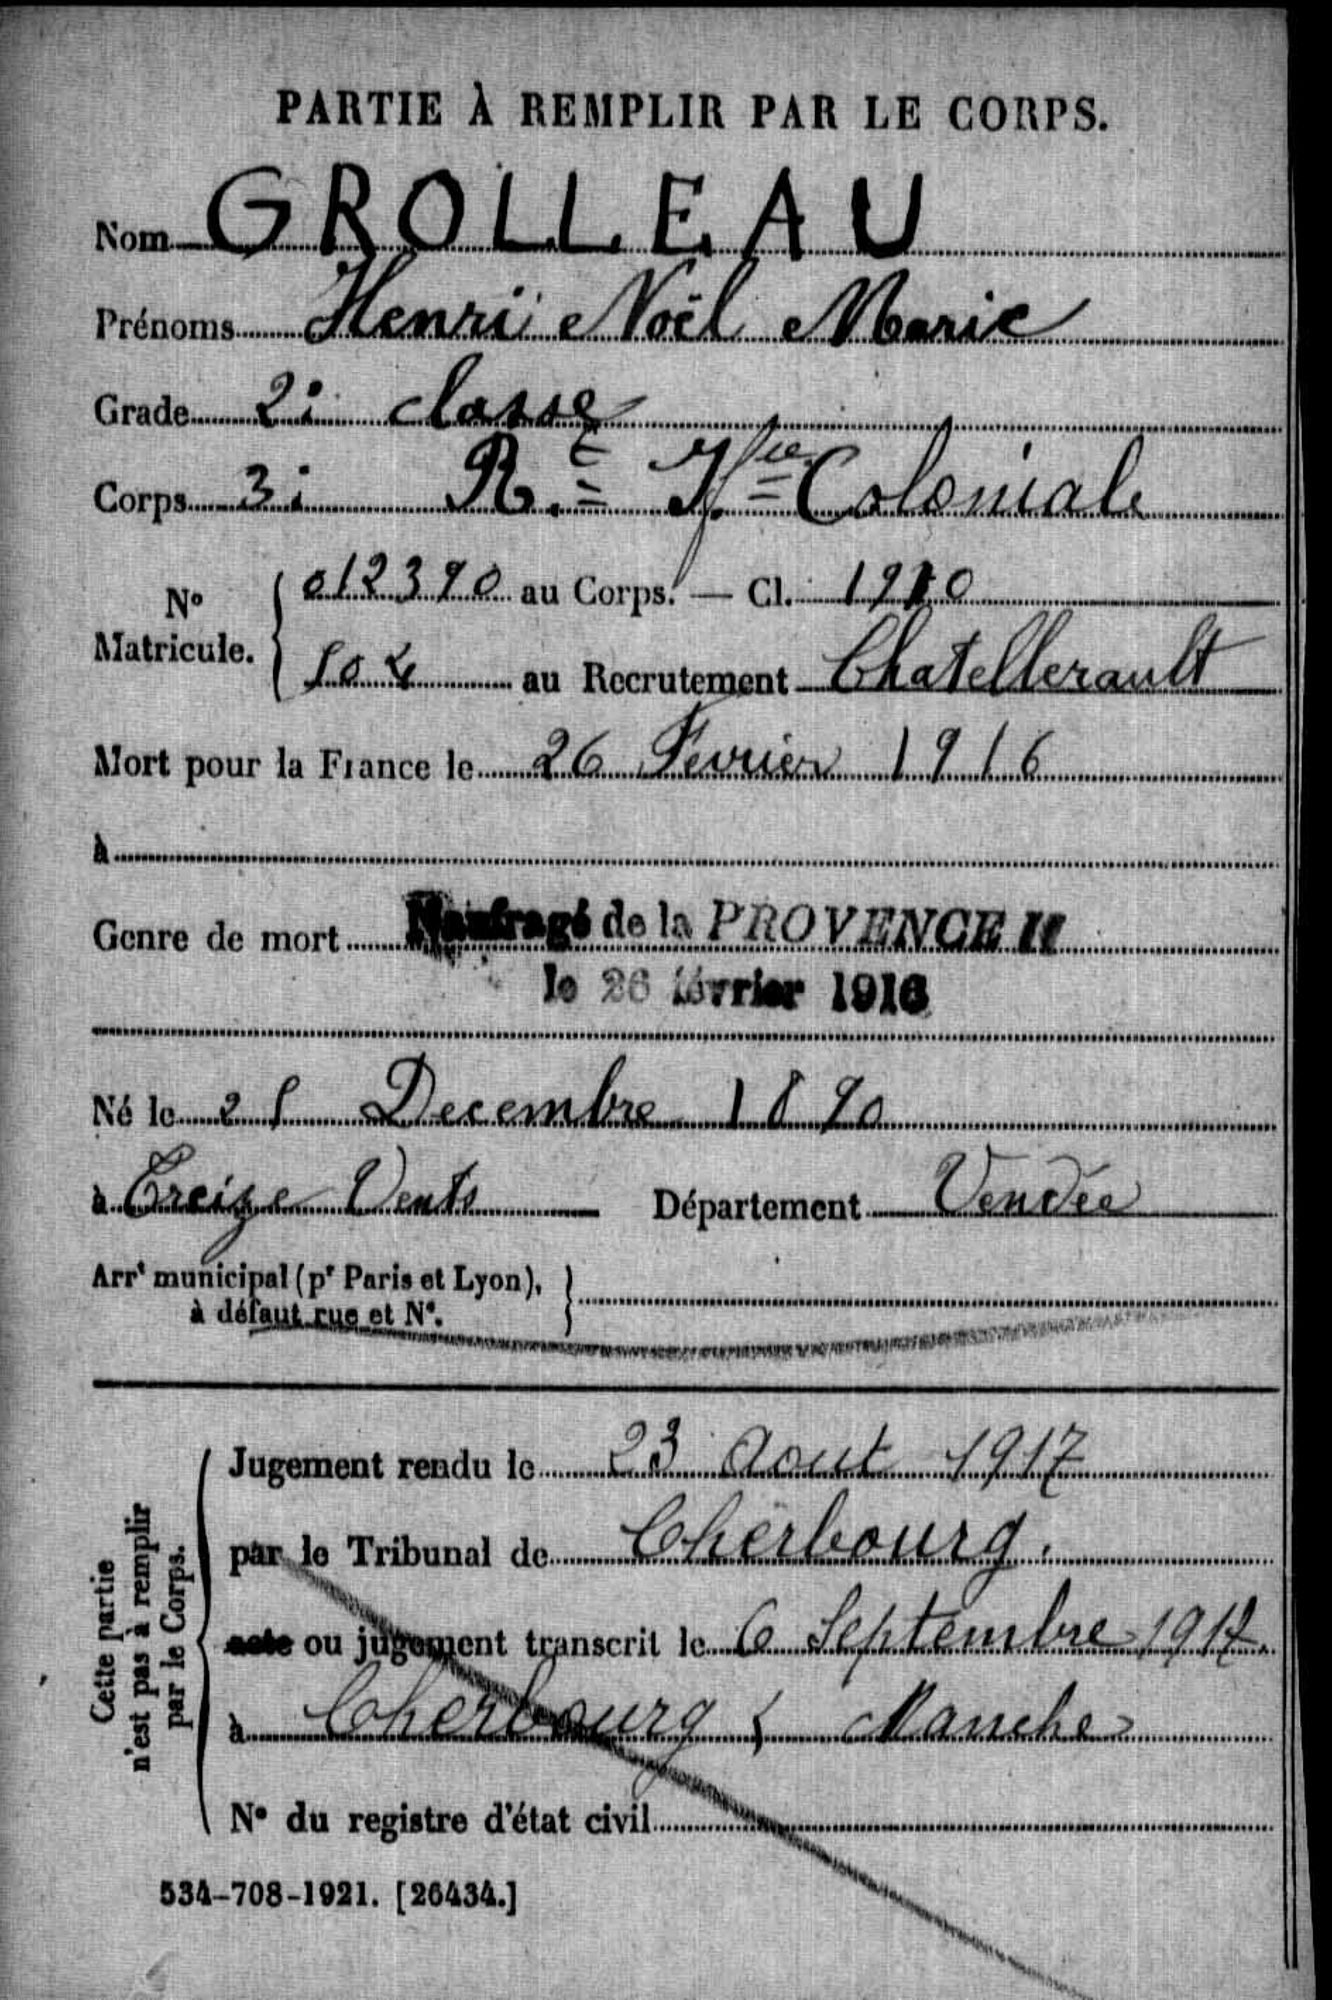 PARTIE À REMPLIR PAR LE CORPS.
Nom GROLLEAU
Prénoms Henri Noël Marie
Grade 2e classe
Corps 3e R.t I.fie Coloniale
No Matricule. 012390 au Corps. — Cl. 1910
504 au Recrutement Chatellerault
Mort pour la France le 26 Fevrier 1916
à
Genre de mort Naufragé de la PROVENCE II
le 26 février 1916
Né le 25 Decembre 1890
à Treize Vents Département Vendée
Arrt municipal (pr Paris et Lyon),
à défaut rue et No.
Cette partie
n'est pas à remplir
par le Corps.
Jugement rendu le 23 Aout 1917
par le Tribunal de Cherbourg.
acte ou jugement transcrit le 6 Septembre 1917.
à Cherbourg ( Manche
No du registre d'état civil
534-708-1921. [26434.]